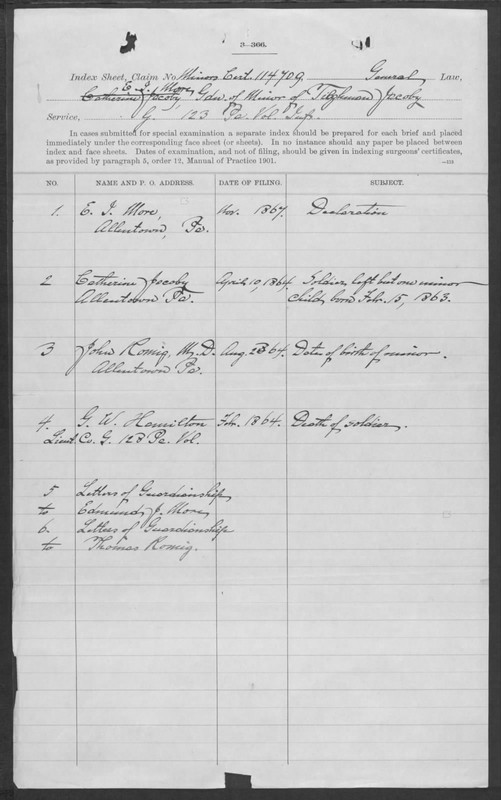 3—306.
Index Sheet, Claim No. Minors Cert. 114709 General Law,
E. J. More
Catherine Jacoby Gdn. of Minor of Tilghman Jacoby
Service, G. 123 Pa. Vol. Inf.
In cases submitted for special examination a separate index should be prepared for each brief and placed
immediately under the corresponding face sheet (or sheets). In no instance should any paper be placed between
index and face sheets. Dates of examination, and not of filing, should be given in indexing surgeons' certificates,
as provided by paragraph 5, order 12, Manual of Practice 1901.
NO. NAME AND P. O. ADDRESS. DATE OF FILING. SUBJECT.
1. E. J. More, Nov. 1867. Declaration
Allentown, Pa.
2 Catherine Jacoby April 10, 1864. Soldier left but one minor
Allentown Pa. child, born Feb. 15, 1863.
3 John Romig, M. D. Aug. 1864. Date of birth of minor.
Allentown Pa.
4. G. W. Hamilton Feb. 1864. Death of soldier.
Lieut. Co. G. 123 Pa. Vol.
5 Letters of Guardianship
to Edmund J. More
6. Letters of Guardianship
to Thomas Romig.